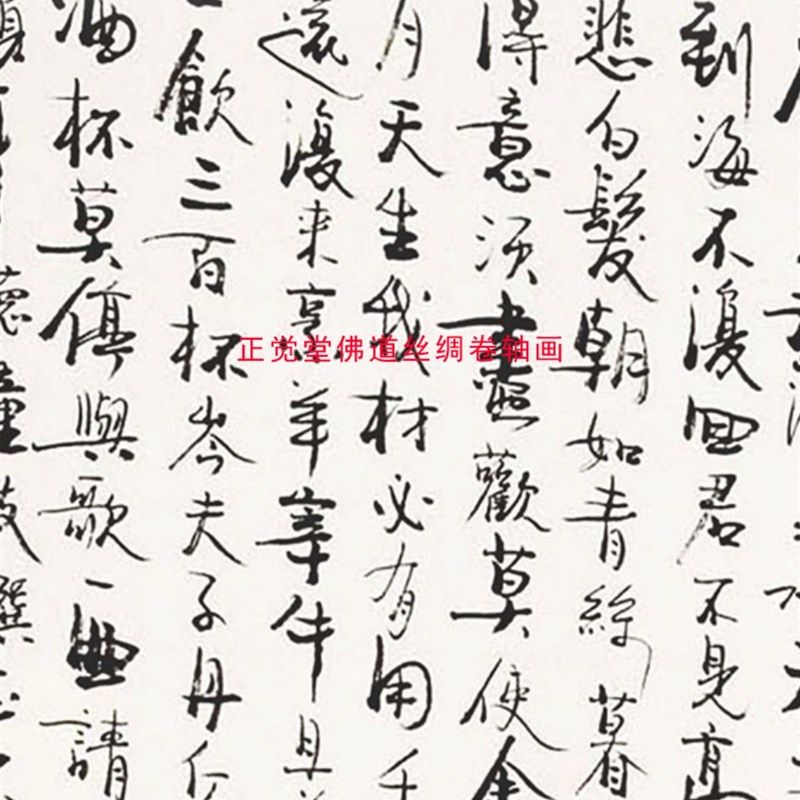 到海不復回君不見高
悲白髮朝如青絲暮
得意須盡歡莫使金
月天生我材必有用千
還復來烹羊宰牛且
飲三百杯岑夫子丹
酒杯莫停與歌一曲請
正觉堂佛道丝绸卷轴画